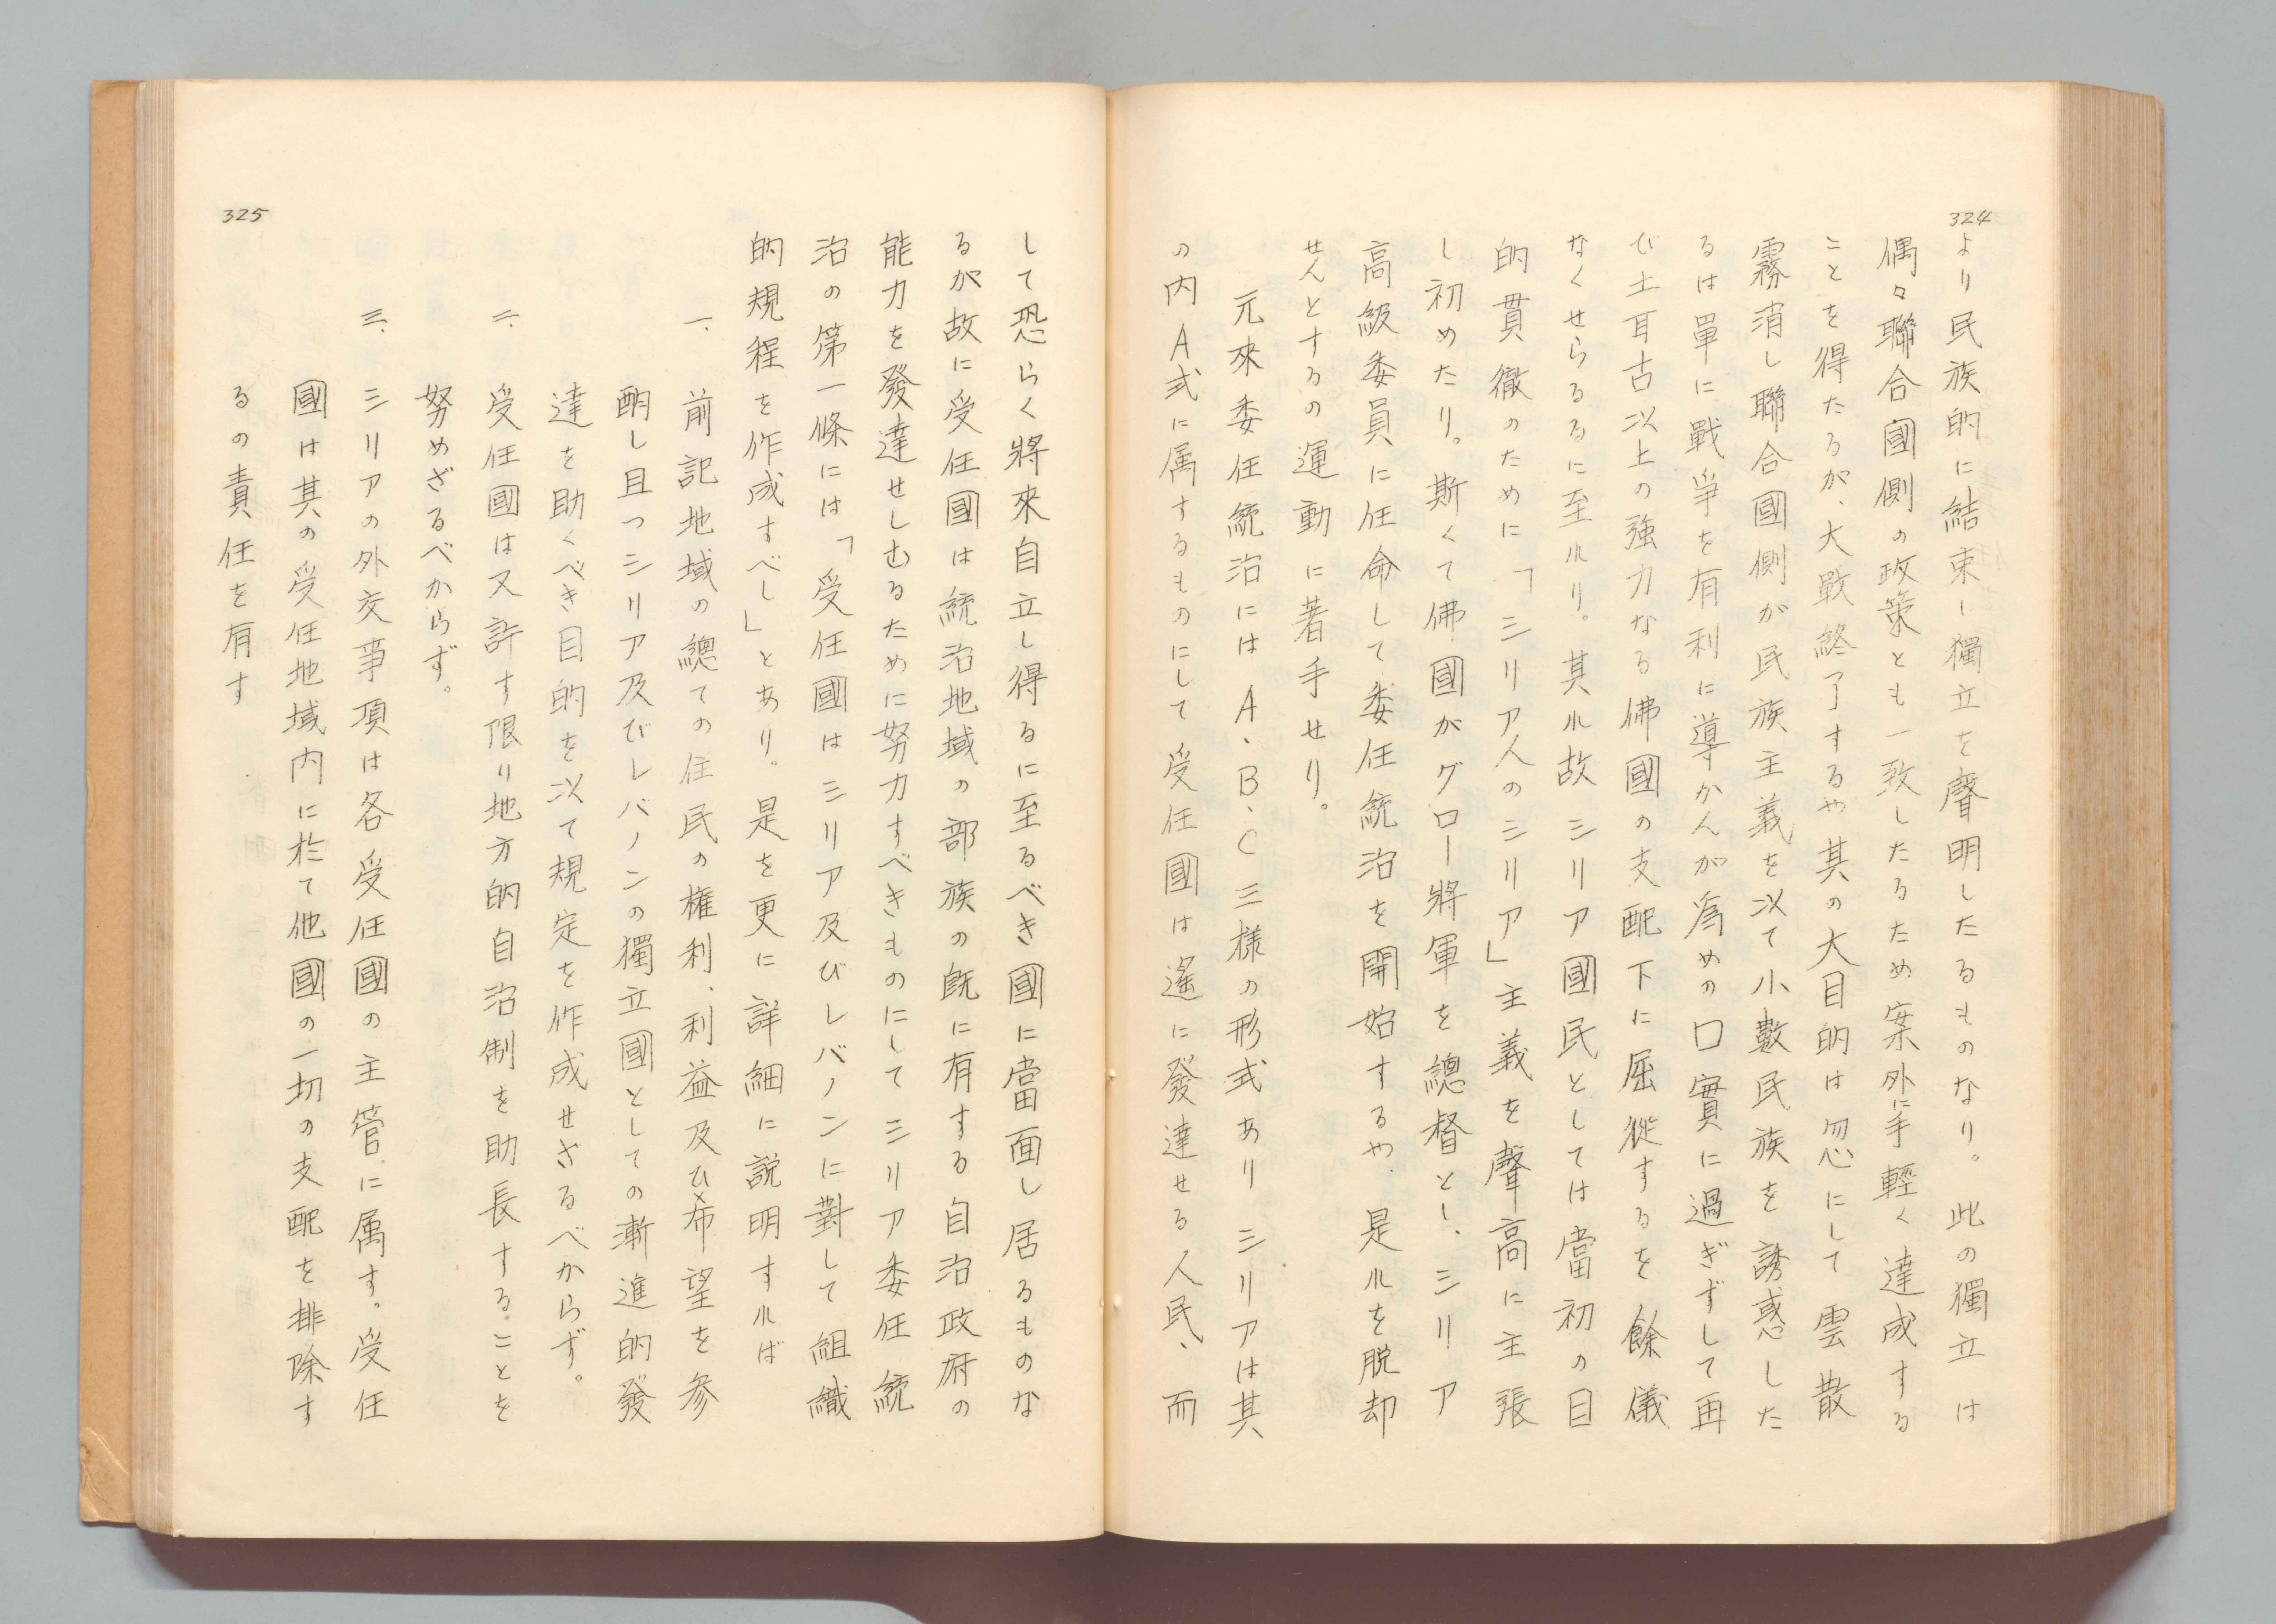 324
より民族的に結束し獨立を聲明したるものなり。此の獨立は
偶々聯合國側の政策とも一致したるため案外に手輕く達成する
ことを得たるが、大戰終了するや其の大目的は忽にして雲散
霧消し聯合國側が民族主義を以て小數民族を誘惑した
るは單に戰爭を有利に導かんが爲めの口實に過ぎずして再
び土耳古以上の強力なる佛國の支配下に屈從するを餘儀
なくせらるるに至れり。其れ故シリア國民としては當初の目
的貫徹のために「シリア人のシリア」主義を聲高に主張
し初めたり。斯くて佛國がグロー將軍を總督とし、シリア
高級委員に任命して委任統治を開始するや、是れを脱却
せんとするの運動に著手せり。
元來委任統治にはA、B、C三樣の形式ありシリアは其
の内A式に属するものにして受任國は遙に發達せる人民、而
して恐らく將來自立し得るに至るべき國に當面し居るものな
るが故に受任國は統治地域の部族の既に有する自治政府の
能力を發達せしむるために努力すべきものにしてシリア委任統
治の第一條には「受任國はシリア及びレバノンに對して組織
的規程を作成すべし」とあり。是を更に詳細に説明すれば
一、前記地域の總ての住民の権利、利益及び希望を参
酌し且つシリア及びレバノンの獨立國としての漸進的發
達を助くべき目的を以て規定を作成せざるべからず。
二、受任國は又許す限り地方的自治制を助長することを
努めざるべからず。
三、シリアの外交事項は各受任國の主管に属す。受任
國は其の受任地域内に於て他國の一切の支配を排除す
るの責任を有す
325